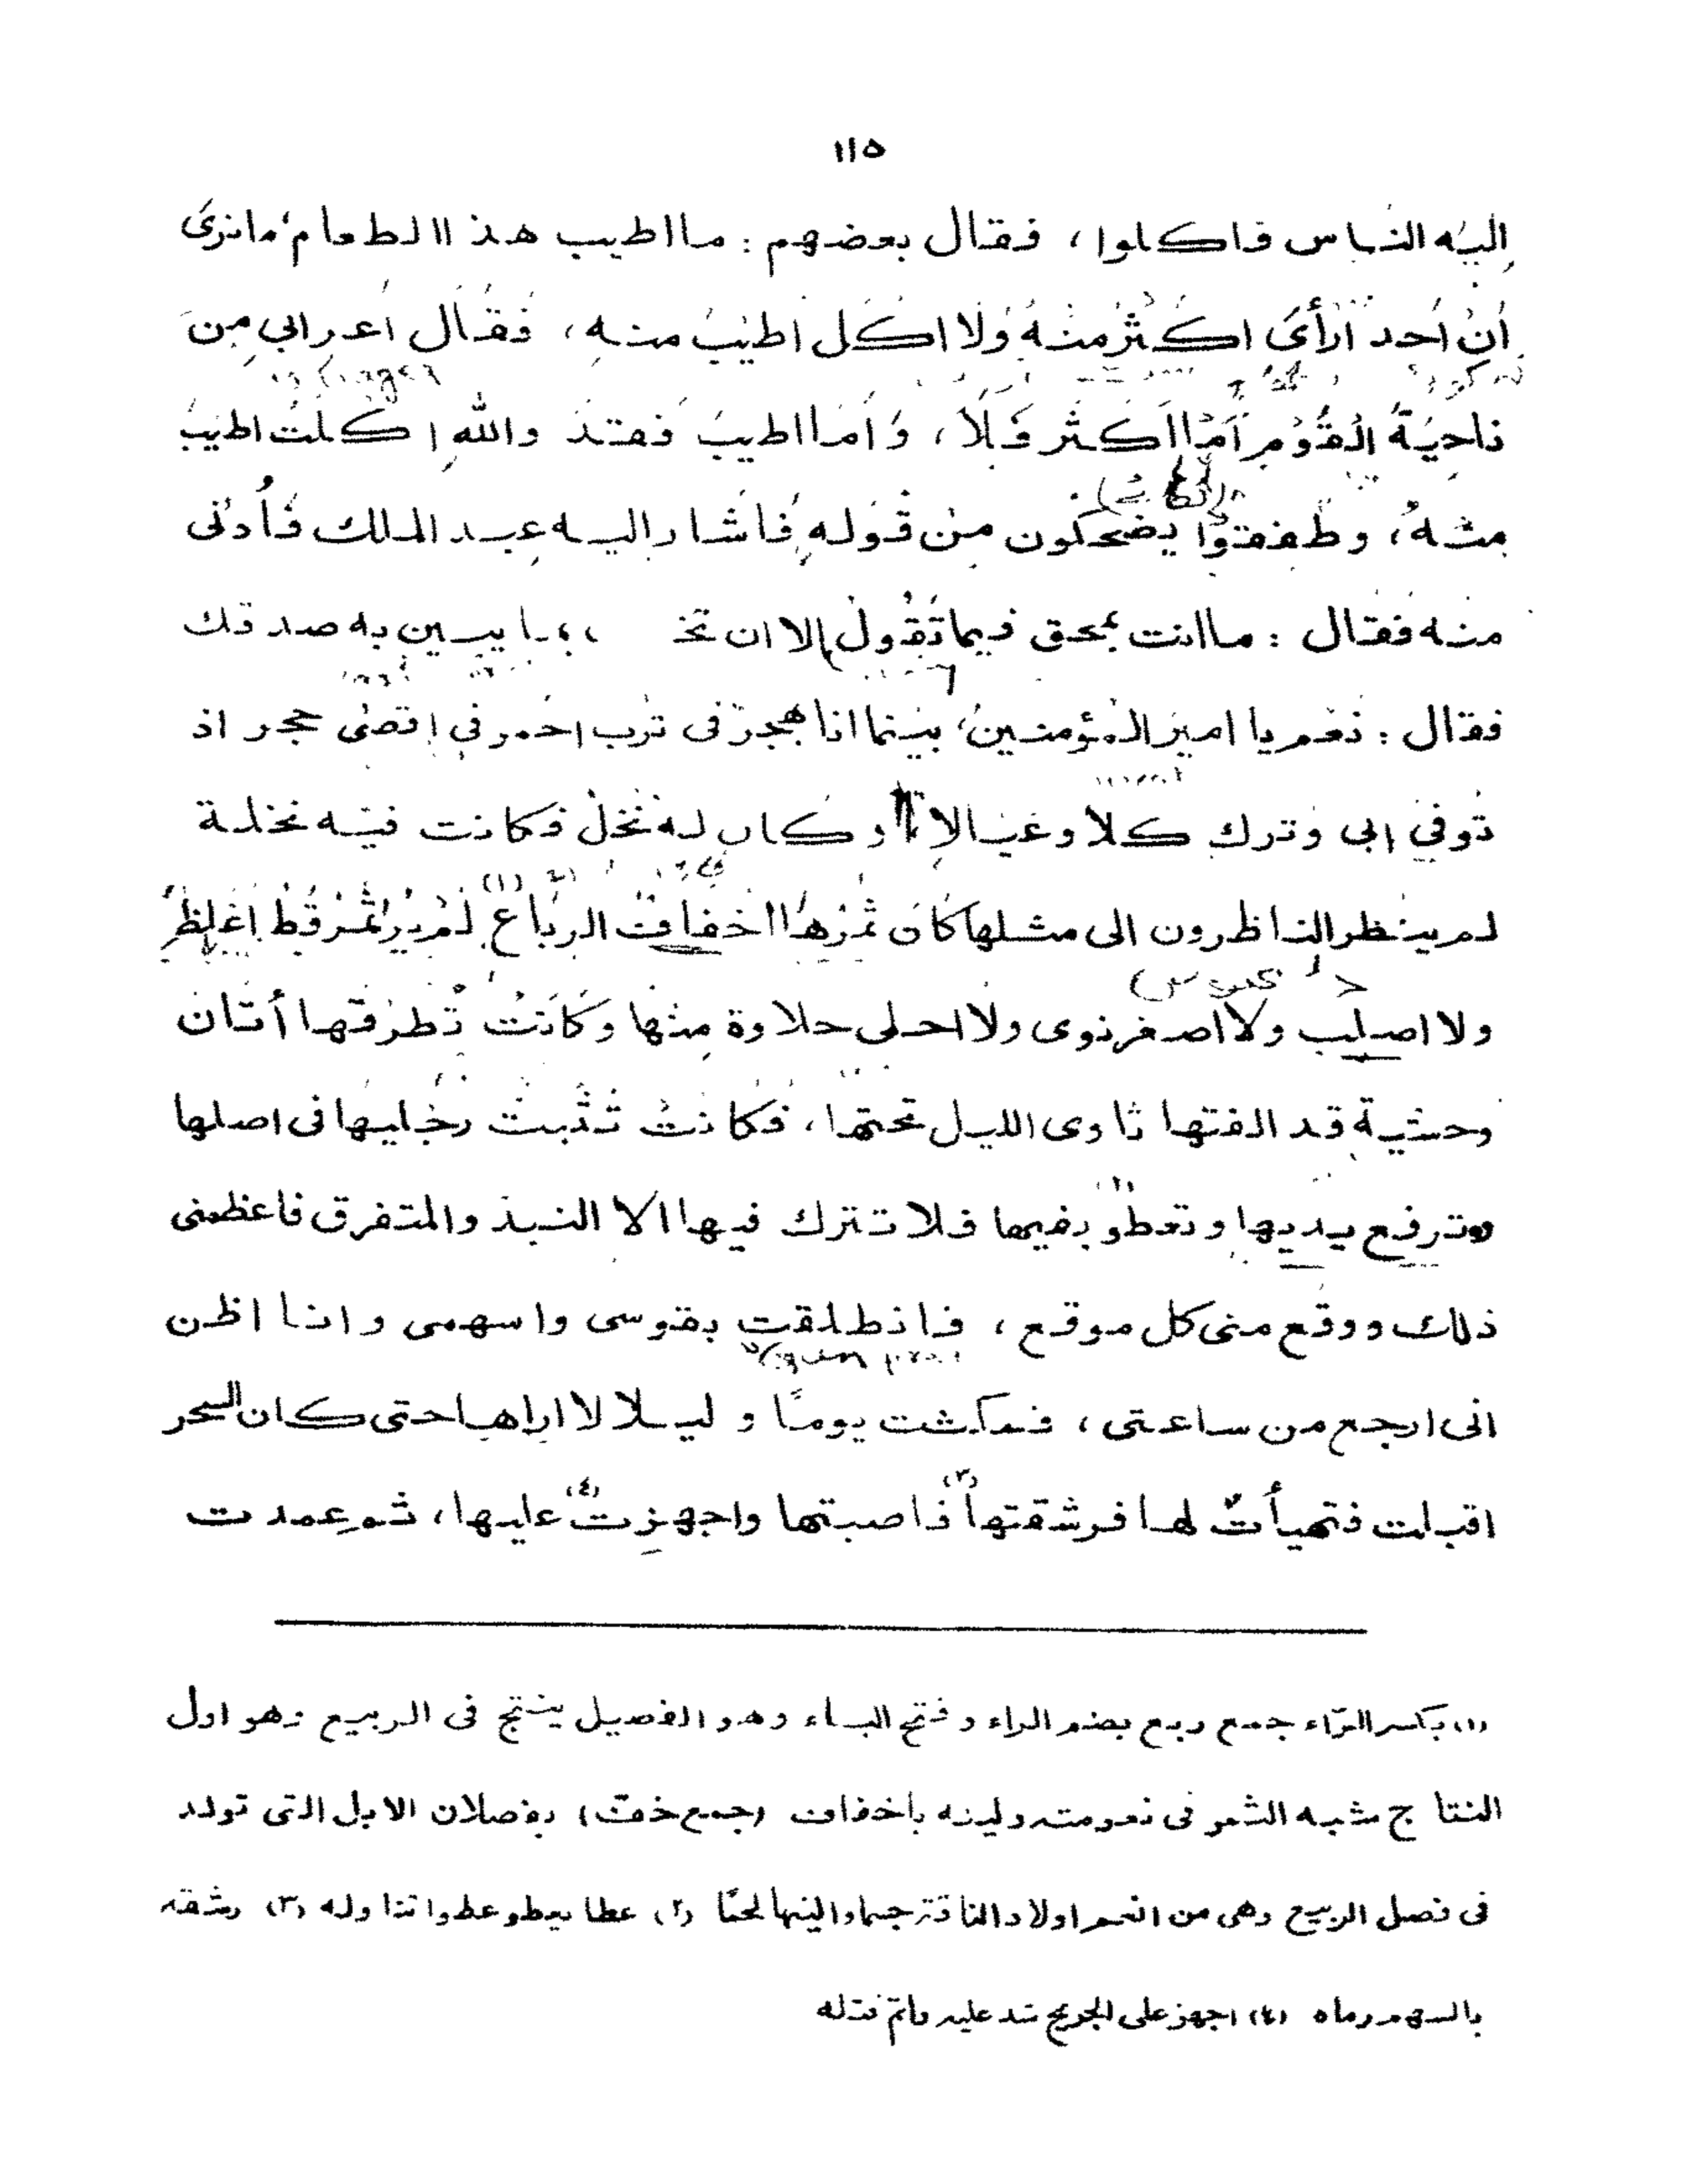 ١١٥
إليه الناس فاكلوا، فقال بعضهم: ما اطيب هذا الطعام، ما نرى
أنْ أحد ارأى اكثر منه ولا اكل اطيب منه، فقال اعرابي من
ناحية القوم أمّا اكثر فلا، وأما اطيب فقد والله اكلت اطيب
منه، وطفقوا يضحكون من قوله فاشار اليه عبد الملك فأدنى
منه فقال: ما انت بمحق فيما تقول إلا ان تخ بما يبين به صدقك
فقال: نعم يا امير المؤمنين، بينما انا بهجر فى ترب احمر في اقصى حجر اذ
توفي ابى وترك كلا وعيالا و كان له نخل فكانت فيه نخلة
لم ينظر الناظرون الى مثلها كان ثمرها اخفاف الرباع (١) لم ير ثمر قط اغلظ
ولا اصلب ولا اصغر نوى ولا احلى حلاوة منها وكانت تطرقها أتان
وحشية قد الفتها تاوى الليل تحتها، فكانت تثبت رجليها فى اصلها
وترفع يديها وتعطو بفيها فلا تترك فيها الا النبذ والمتفرق فاعظمنى
ذلك ووقع منى كل موقع، فانطلقت بقوسى واسهمى وانا اظن
انى ارجع من ساعتى، فمكثت يومًا و ليلا لا اراها حتى كان السحر
اقبلت فتهيأت لها فرشقتها (٣) فاصبتها واجهزت (٤) عليها، ثم عمدت
(١) بكسر الرّاء جمع ربع بضم الراء و فتح الباء وهو الفصيل ينتج فى الربيع وهو اول
النتاج مشبه الثمر فى نعومته ولينه باخفاف (جمع خف) بفصلان الابل التى تولد
فى فصل الربيع وهى من انعم اولاد الناقة جسما والينها لحمًا (٢) عطا يعطو عطوا تناوله (٣) رشقه
بالسهم رماه (٤) اجهز على الجريح شد عليه واتم قتله